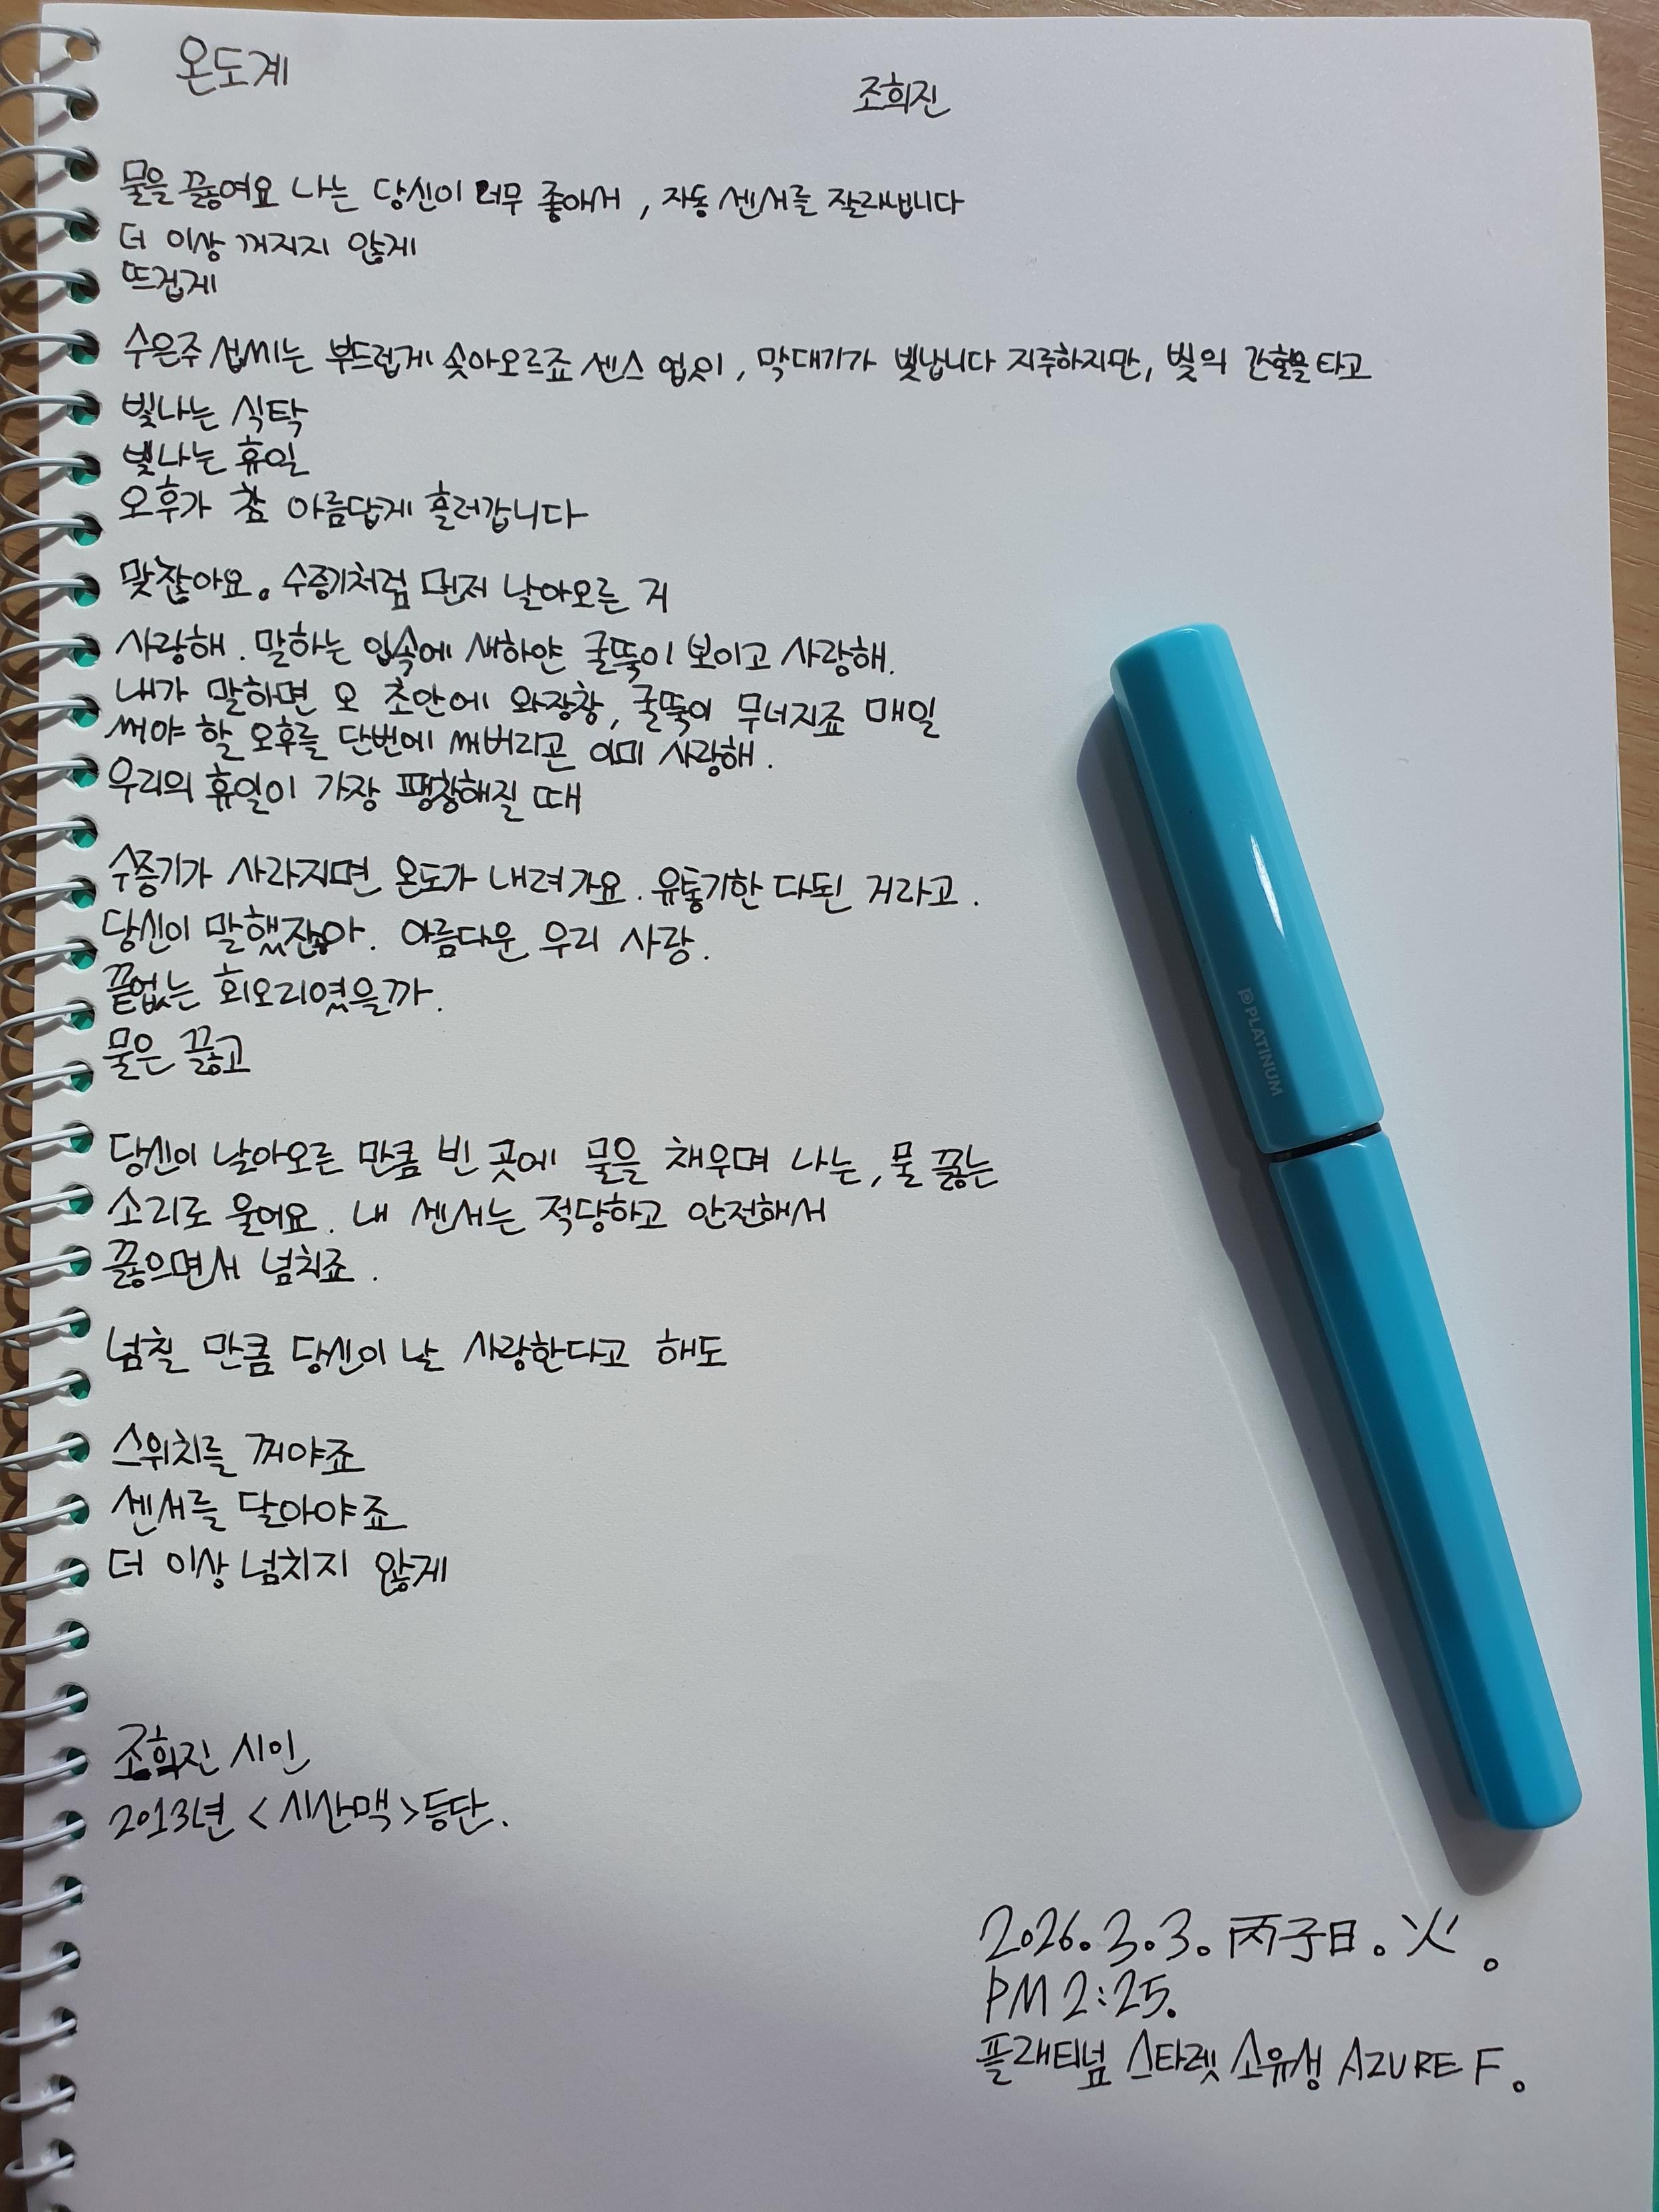 온도계
조희진
물을 끓여요 나는 당신이 너무 좋아서, 자동센서를 잘라냅니다
더 이상 꺼지지 않게
뜨겁게
수은주 섭씨는 부드럽게 솟아오르죠 센스 없이, 막대기가 빛납니다 지루하지만, 빛의 간헐을 타고
빛나는 식탁
빛나는 휴일
오후가 참 아름답게 흘러갑니다
맞잖아요. 수증기처럼 먼저 날아오른 거
사랑해. 말하는 입속에 새하얀 굴뚝이 보이고 사랑해.
내가 말하면 오 초안에 와장창, 굴뚝이 무너지죠 매일
써야 할 오후를 단번에 써버리곤 이미 사랑해.
우리의 휴일이 가장 팽창해질 때
수증기가 사라지면 온도가 내려가요. 유통기한 다된 거라고.
당신이 말했잖아. 아름다운 우리 사랑.
끝없는 회오리였을까.
물은 끓고
당신이 날아오른 만큼 빈 곳에 물을 채우며 나는, 물 끓는
소리로 울어요. 내 센서는 적당하고 안전해서
끓으면서 넘치죠.
넘칠 만큼 당신이 날 사랑한다고 해도
스위치를 꺼야죠
센서를 달아야죠
더 이상 넘치지 않게
조희진 시인
2013년 <시산맥>등단.
2026.3.3. 丙子日. 火.
PM 2:25.
플래티넘 스타렛 소유생 AZURE F.
PLATINUM